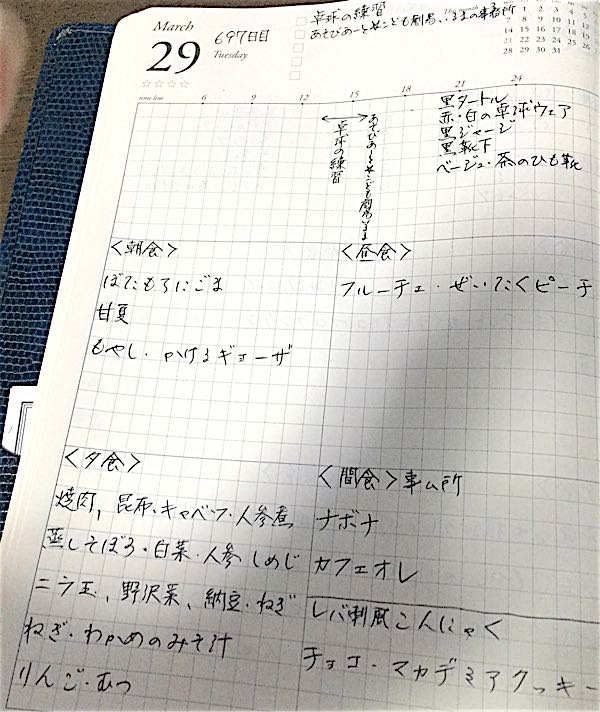 March
29
697日目
Tuesday
卓球の練習
あそびあーと☆こども劇場いるまの事務所
This month
7 8 9 10 11 12 13
14 15 16 17 18 19 20
21 22 23 24 25 26 27
28 29 30 31
☆☆☆☆
time line 6 9 12 15 18 21 24
卓球の練習
あそびあーと☆こども劇場いるま
黒タートル
赤・白の卓球ウェア
黒ジャージ
黒靴下
ベージュ・茶のひも靴
<朝食>
ぼたもちにごま
甘夏
もやし・かけるギョーザ
<昼食>
フルーチェ・ぜいたくピーチ
<夕食>
焼肉、昆布・キャベツ・人参煮
蒸しそぼろ・白菜・人参・しめじ
ニラ玉、野沢菜、納豆・ねぎ
ねぎ・わかめのみそ汁
りんご・むつ
<間食>事ム所
ナボナ
カフェオレ
レバ刺風こんにゃく
チョコ・マカデミアクッキー